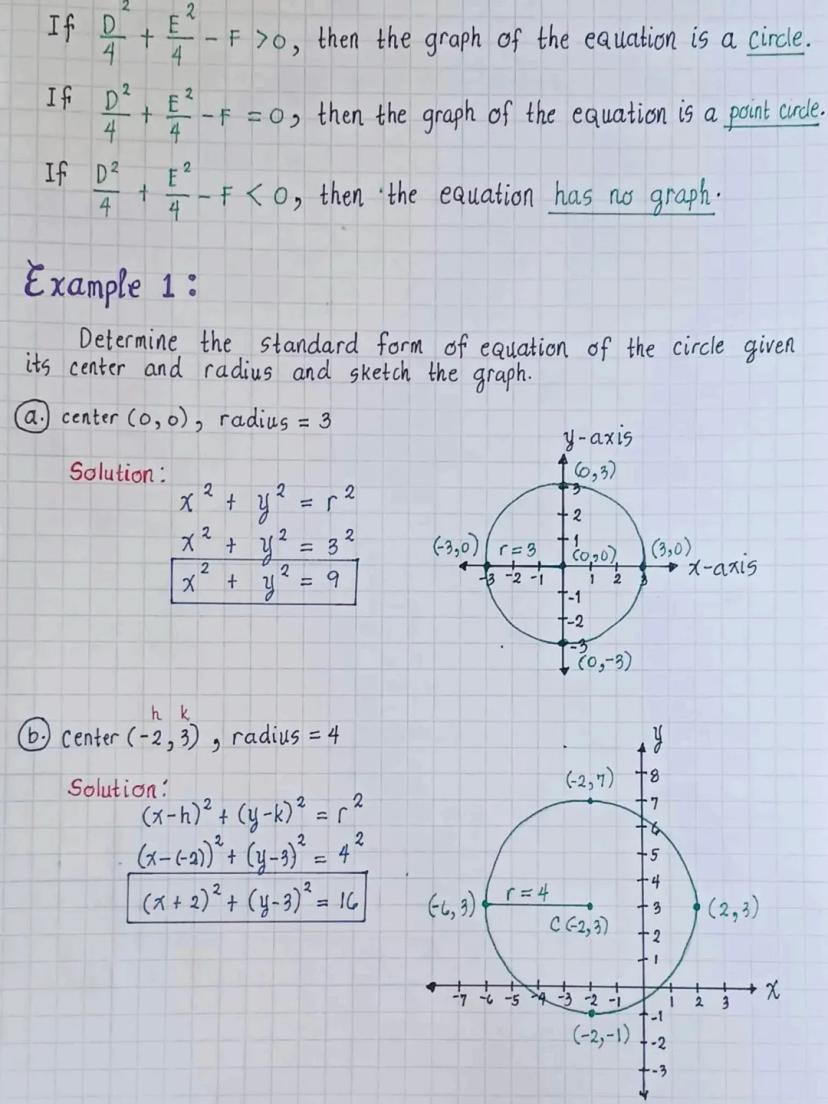 If D²/4 + E²/4 - F > 0, then the graph of the equation is a circle.
If D²/4 + E²/4 - F = 0, then the graph of the equation is a point circle.
If D²/4 + E²/4 - F < 0, then the equation has no graph.
Example 1:
Determine the standard form of equation of the circle given
its center and radius and sketch the graph.
a. center (0,0), radius = 3
Solution:
x² + y² = r²
x² + y² = 3²
x² + y² = 9
y-axis
(0,3)
3
2
1
(-3,0) r=3 (0,0) (3,0)
x-axis
-3 -2 -1 1 2 3
-1
-2
-3
(0,-3)
h k
b. center (-2, 3), radius = 4
Solution:
(x-h)² + (y-k)² = r²
(x-(-2))² + (y-3)² = 4²
(x + 2)² + (y-3)² = 16
y
8
(-2,7)
7
6
5
4
(-6,3) r=4 3 (2,3)
C(-2,3)
2
1
x
-7 -6 -5 -4 -3 -2 -1 1 2 3
-1
(-2,-1)
-2
-3